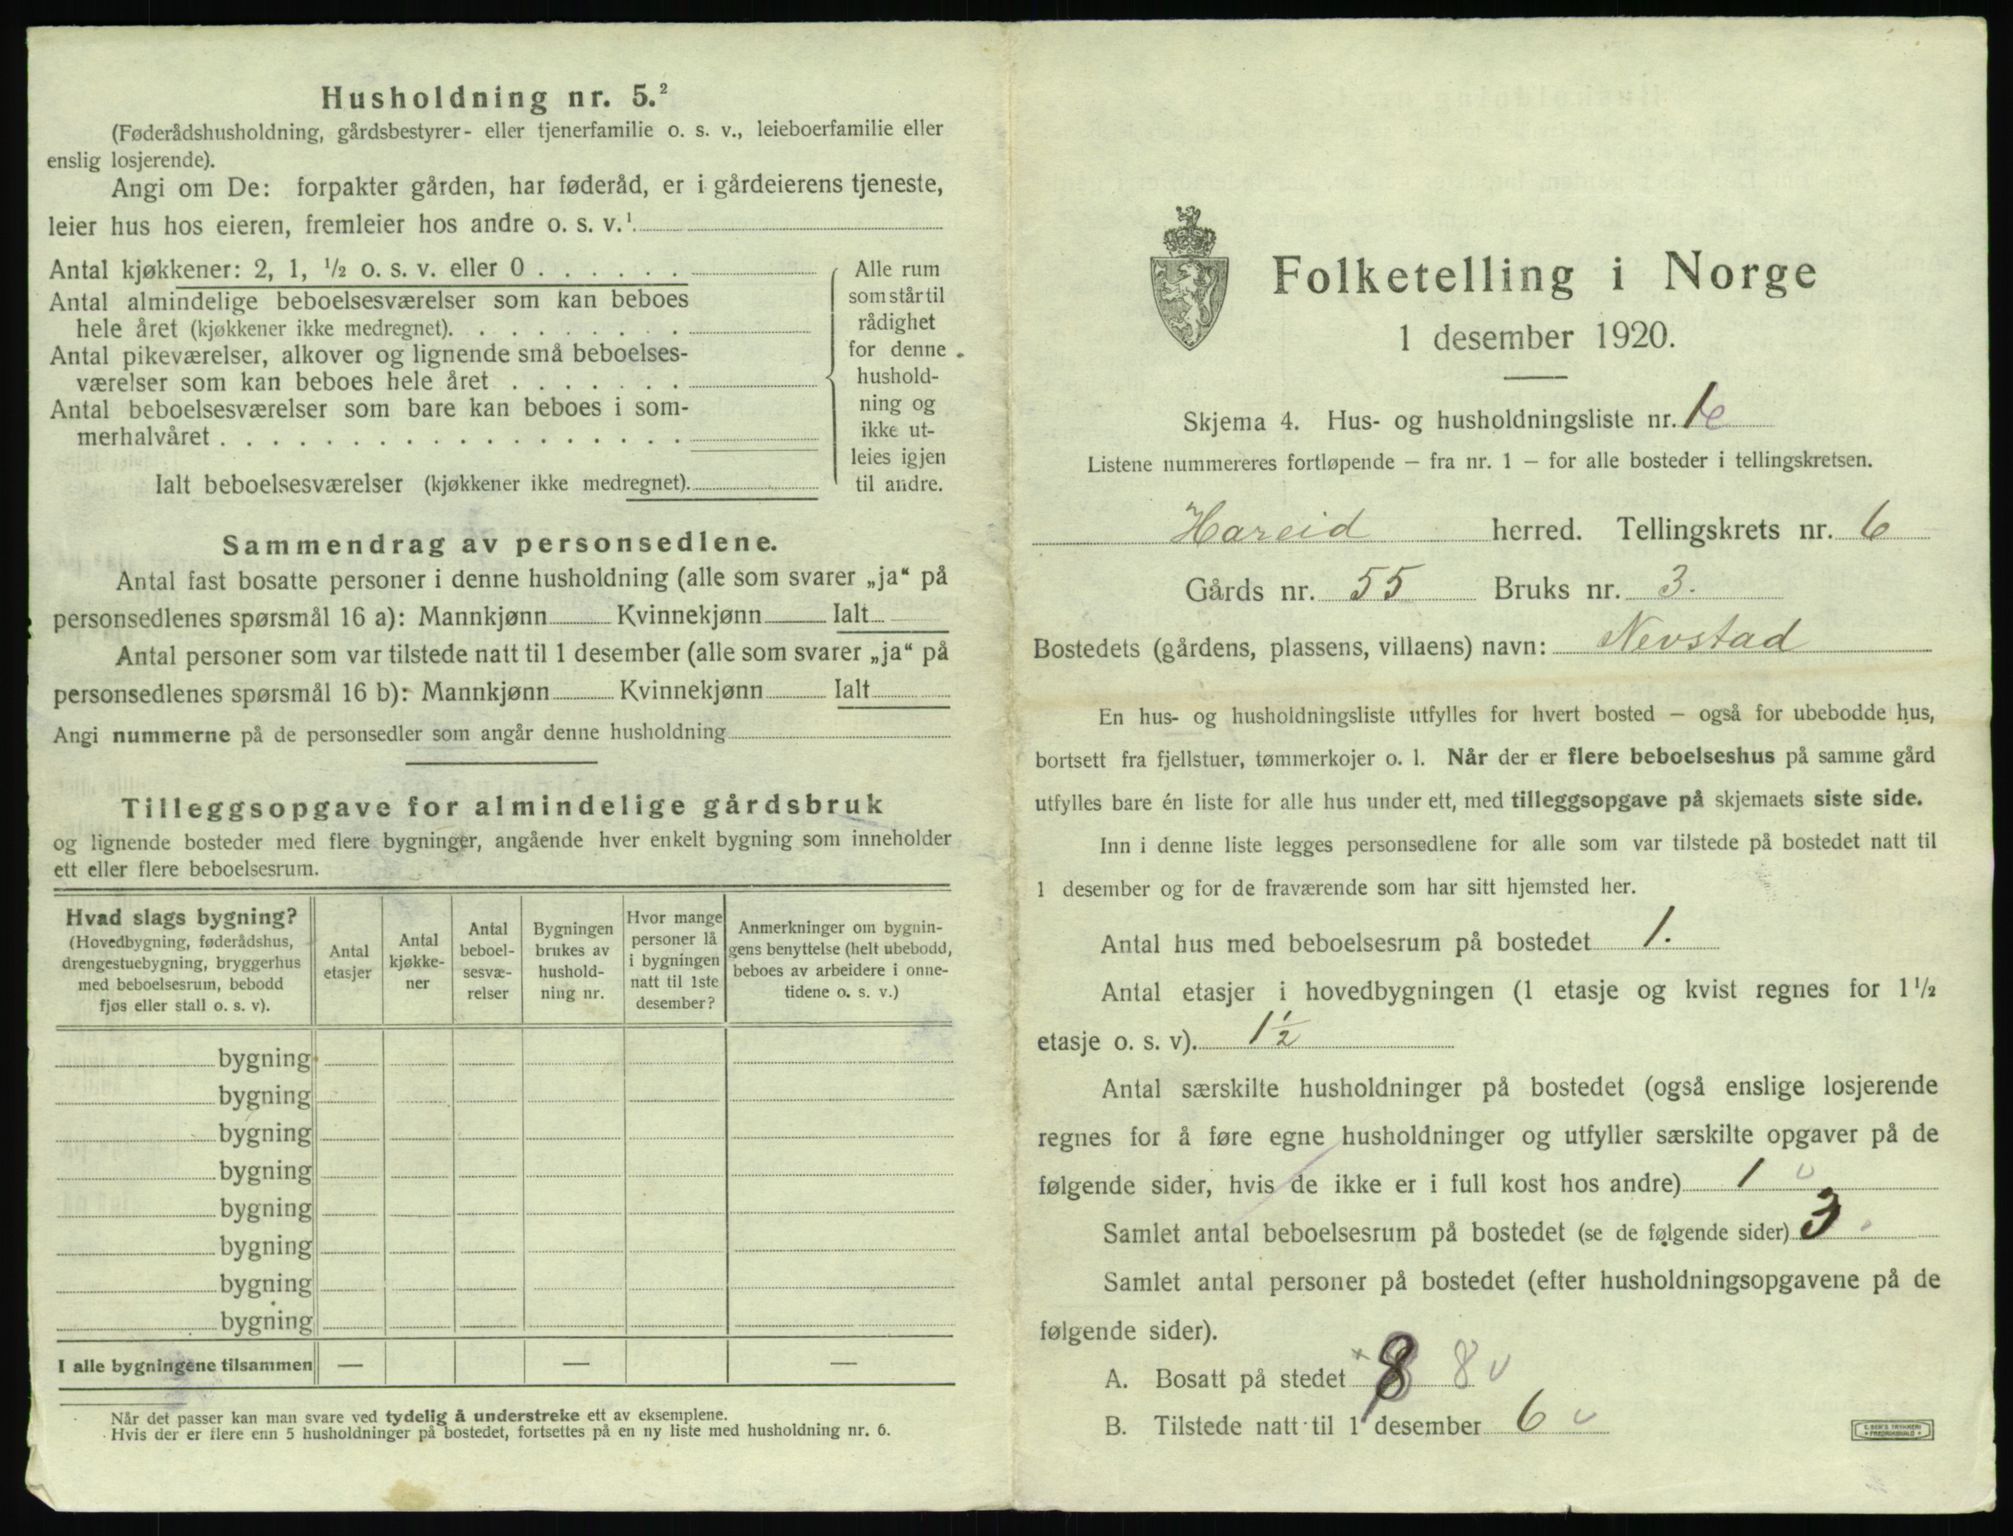 Husholdning nr. 5.²
(Føderådshusholdning, gårdsbestyrer- eller tjenerfamilie o. s. v., leieboerfamilie eller
enslig losjerende).
Angi om De: forpakter gården, har føderåd, er i gårdeierens tjeneste,
leier hus hos eieren, fremleier hos andre o. s. v.¹
Antal kjøkkener: 2, 1, ½ o. s. v. eller 0
Antal almindelige beboelsesværelser som kan beboes
hele året (kjøkkener ikke medregnet).
Antal pikeværelser, alkover og lignende små beboelses-
værelser som kan beboes hele året
Antal beboelsesværelser som bare kan beboes i som-
merhalvåret
Ialt beboelsesværelser (kjøkkener ikke medregnet).
Alle rum
som står til
rådighet
for denne
hushold-
ning og
ikke ut-
leies igjen
til andre.
Sammendrag av personsedlene.
Antal fast bosatte personer i denne husholdning (alle som svarer „ja“ på
personsedlenes spørsmål 16 a): Mannkjønn Kvinnekjønn Ialt
Antal personer som var tilstede natt til 1 desember (alle som svarer „ja“ på
personsedlenes spørsmål 16 b): Mannkjønn Kvinnekjønn Ialt
Angi nummerne på de personsedler som angår denne husholdning
Tilleggsopgave for almindelige gårdsbruk
og lignende bosteder med flere bygninger, angående hver enkelt bygning som inneholder
ett eller flere beboelsesrum.
Hvad slags bygning?
(Hovedbygning, føderådshus,
drengestuebygning, bryggerhus
med beboelsesrum, bebodd
fjøs eller stall o. s. v).
Antal
etasjer
Antal
kjøkke-
ner
Antal
beboel-
sesvæ-
relser
Bygningen
brukes av
hushold-
ning nr.
Hvor mange
personer lå
i bygningen
natt til 1ste
desember?
Anmerkninger om bygnin-
gens benyttelse (helt ubebodd,
beboes av arbeidere i onne-
tidene o. s. v.)
bygning
bygning
bygning
bygning
bygning
bygning
bygning
bygning
I alle bygningene tilsammen — — —
Når det passer kan man svare ved tydelig å understreke ett av eksemplene.
Hvis der er flere enn 5 husholdninger på bostedet, fortsettes på en ny liste med husholdning nr. 6.
Folketelling i Norge
1 desember 1920.
Skjema 4. Hus- og husholdningsliste nr.
Listene nummereres fortløpende – fra nr. 1 – for alle bosteder i tellingskretsen.
Hareid herred. Tellingskrets nr. 6
Gårds nr. 55 Bruks nr. 3.
Bostedets (gårdens, plassens, villaens) navn: Nevstad
En hus- og husholdningsliste utfylles for hvert bosted – også for ubebodde hus,
bortsett fra fjellstuer, tømmerkojer o. l. Når der er flere beboelseshus på samme gård
utfylles bare én liste for alle hus under ett, med tilleggsopgave på skjemaets siste side.
Inn i denne liste legges personsedlene for alle som var tilstede på bostedet natt til
1 desember og for de fraværende som har sitt hjemsted her.
Antal hus med beboelsesrum på bostedet 1.
Antal etasjer i hovedbygningen (1 etasje og kvist regnes for 1½
etasje o. s. v). 1½
Antal særskilte husholdninger på bostedet (også enslige losjerende
regnes for å føre egne husholdninger og utfyller særskilte opgaver på de
følgende sider, hvis de ikke er i full kost hos andre) 1
Samlet antal beboelsesrum på bostedet (se de følgende sider) 3.
Samlet antal personer på bostedet (efter husholdningsopgavene på de
følgende sider).
A. Bosatt på stedet 8 8
B. Tilstede natt til 1 desember 6